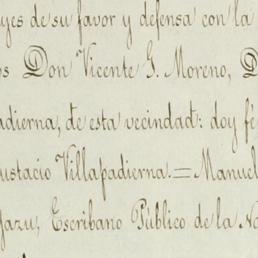 yes de su favor y defensa con la
os Don Vicente G. Moreno, D
adierna, de esta vecindad: doy fé
ustacio Villapadierna.=Manuel
yazu, Escribano Público de la No